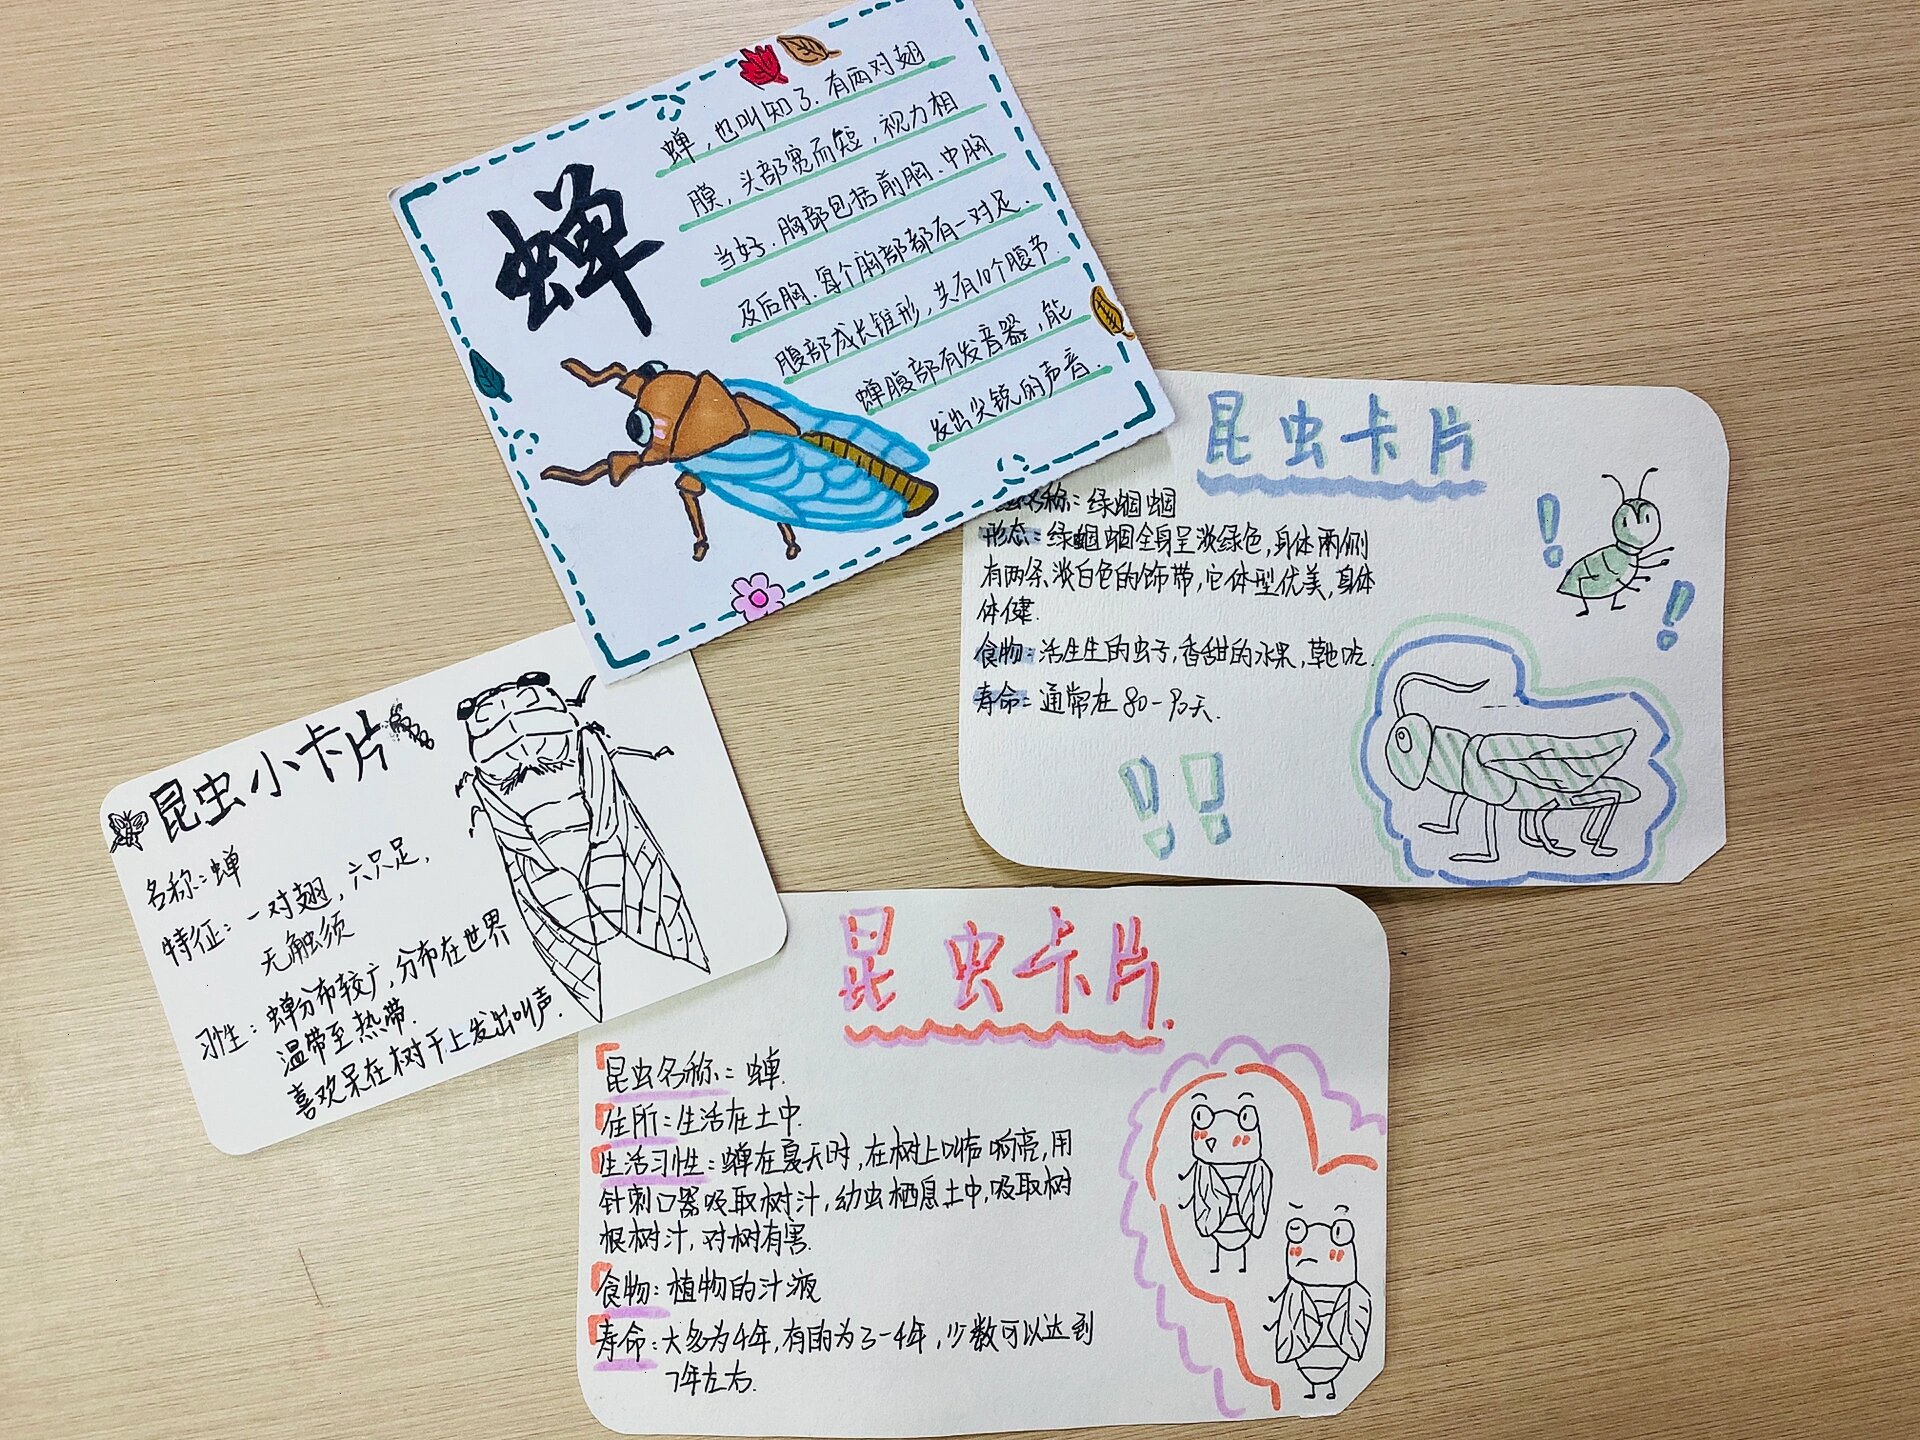 蝉
蝉，也叫知了.有两对翅
膜，头部宽而短，视力相
当好.胸部包括前胸.中胸
及后胸.每个胸部都有一对足.
腹部成长锥形，共有10个腹节.
蝉腹部有发音器，能
发出尖锐的声音.
昆虫卡片
名称：绿蝈蝈
形态：绿蝈蝈全身呈淡绿色，身体两侧
有两条淡白色的饰带，它体型优美，身体
体健.
食物：活生生的虫子，香甜的水果，草也吃.
寿命：通常在80-90天.
昆虫小卡片
名称：蝉
特征：一对翅，六只足，
无触须
习性：蝉分布较广，分布在世界
温带至热带.
喜欢呆在树干上发出叫声.
昆虫卡片.
昆虫名称：蝉.
住所：生活在土中.
生活习性：蝉在夏天时，在树上叫声响亮，用
针刺口器吸取树汁，幼虫栖息土中，吸取树
根树汁，对树有害.
食物：植物的汁液
寿命：大多为4年，有的为3-4年，少数可以达到
7年左右.